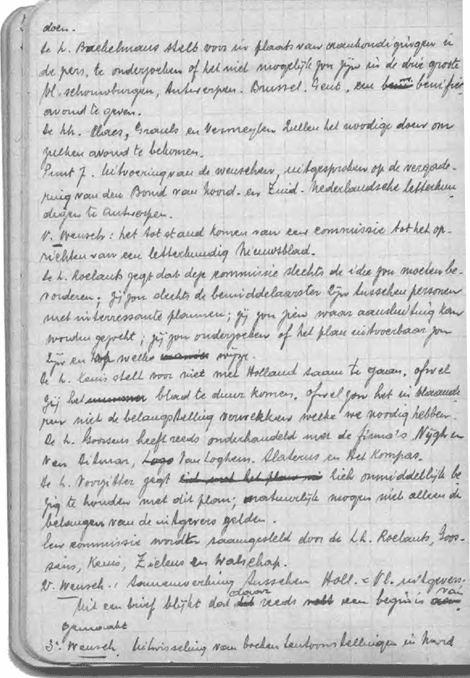 doen.
De h. Backelmans stelt voor in plaats van aankondigingen in
de pers, te onderzoeken of het niet mogelijk zou zijn in de drie groote
Vl. schouwburgen, Antwerpen - Brussel - Gent, een benefiet
avond te geven.
De hh. Claes, Grauls en Vermeylen zullen het noodige doen om
zulken avond te bekomen.
Punt 7. Uitvoering van de wenschen, uitgesproken op de vergade-
ring van den Bond van Noord- en Zuid-Nederlandsche Letterkun
digen te Antwerpen.
1. Wensch: het tot stand komen van een commissie tot het op-
richten van een letterkundig Nieuwsblad.
De h. Roelants zegt dat deze commissie slechts de idee zou moeten be-
vorderen; zij zou slechts de bemiddelaarster zijn tusschen personen
met interressante plannen; zij zou zien waar aansluiting kan
worden gezocht; zij zou onderzoeken of het plan uitvoerbaar zou
zijn en op welke wijze.
De h. Kenis stelt voor niet met Holland saam te gaan, ofwel
zij het blad te duur komen, ofwel zou het in
niet de belangstelling verwekken welke we noodig hebben.
De h. Goossens heeft reeds onderhandeld met de firma's Nijgh en
Van Ditmar, Van Loghem, Slaterus en Het Kompas.
De h. Voorzitter zegt zich onmiddellijk be
zig te houden met dit plan; natuurlijk mogen niet alleen de
belangen van de uitgevers gelden.
Een commissie wordt saamgesteld door de hh. Roelants, Goos-
sens, Kenis, Zielens en Walschap.
2. Wensch: Samenwerking tusschen Holl. & Vl. uitgevers.
Uit een brief blijkt dat daar reeds een begin van
gemaakt
3. Wensch. Uitwisseling van boekententoonstellingen in Noord